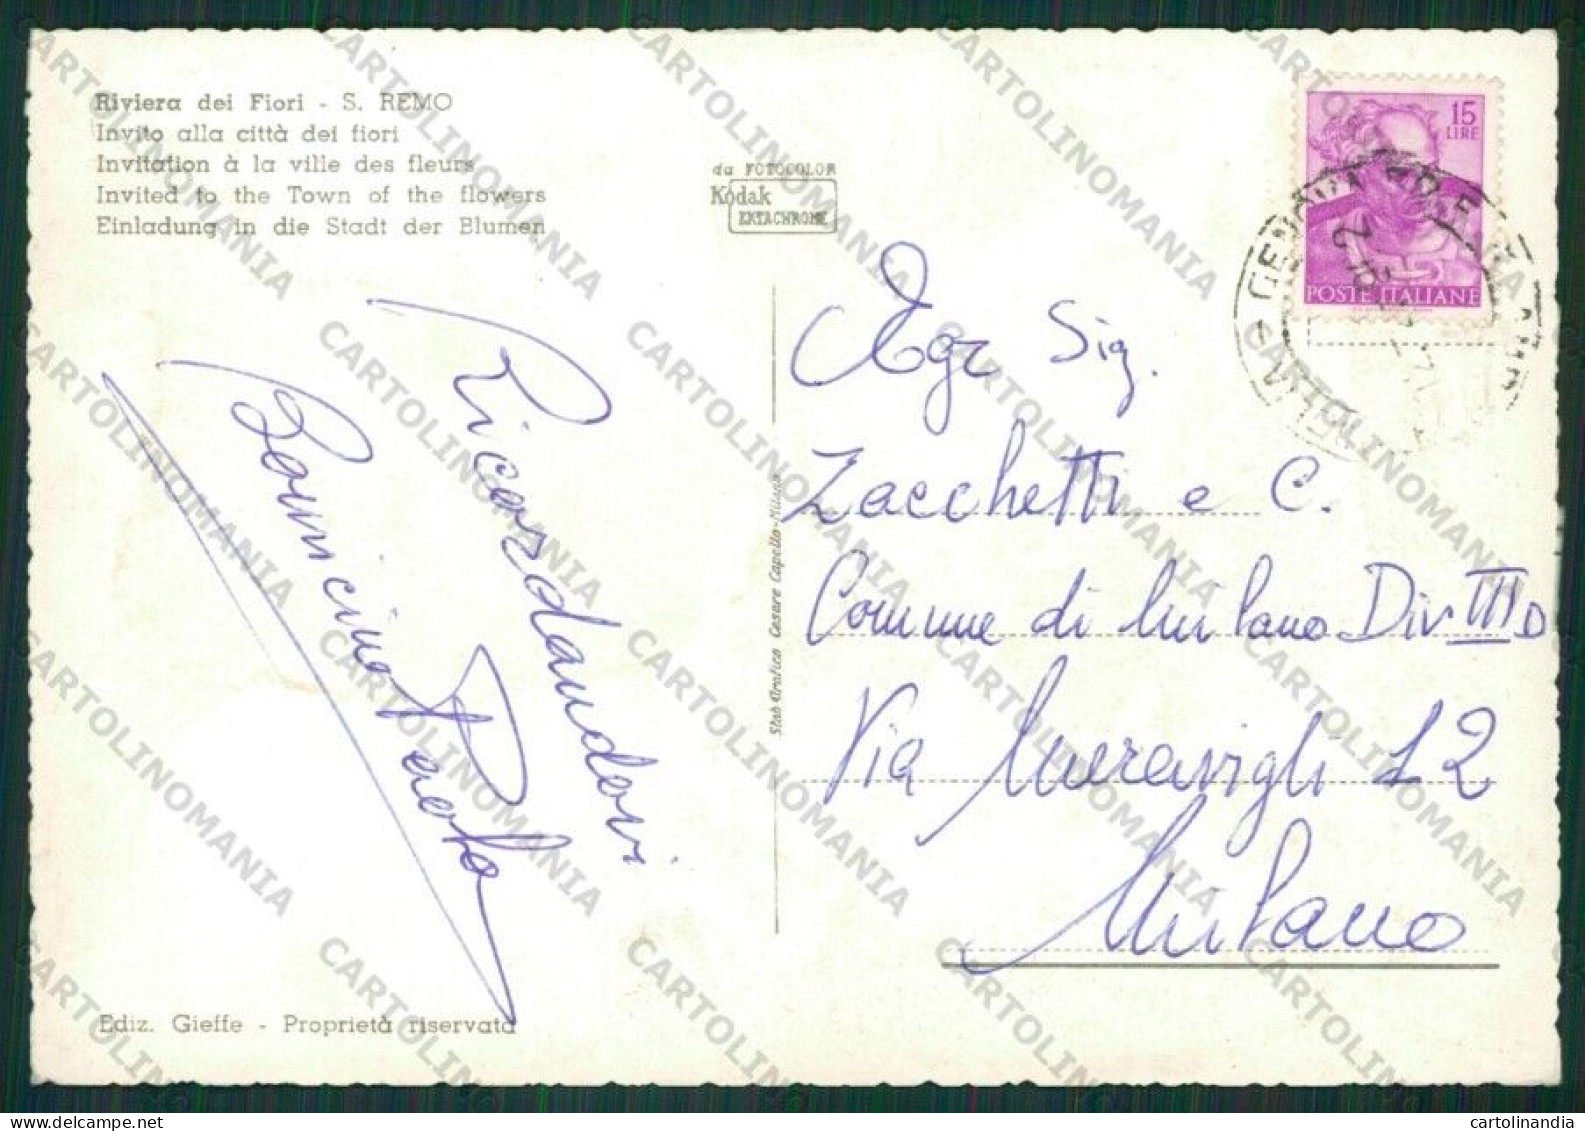 Riviera dei Fiori - S. REMO
Invito alla città dei fiori
Invitation à la ville des fleurs
Invited to the Town of the flowers
Einladung in die Stadt der Blumen
da FOTOCOLOR
Kodak
EKTACHROME
15
LIRE
POSTE ITALIANE
Ricordandovi
Paola
Stab Grafico Cesare Capello-Milano
Egr Sig.
Zacchetti e C.
Comune di Milano Div III D
Via Meravigli 12
Milano
Ediz. Gieffe - Proprietà riservata
CARTOLINOMANIA
cartolinandia